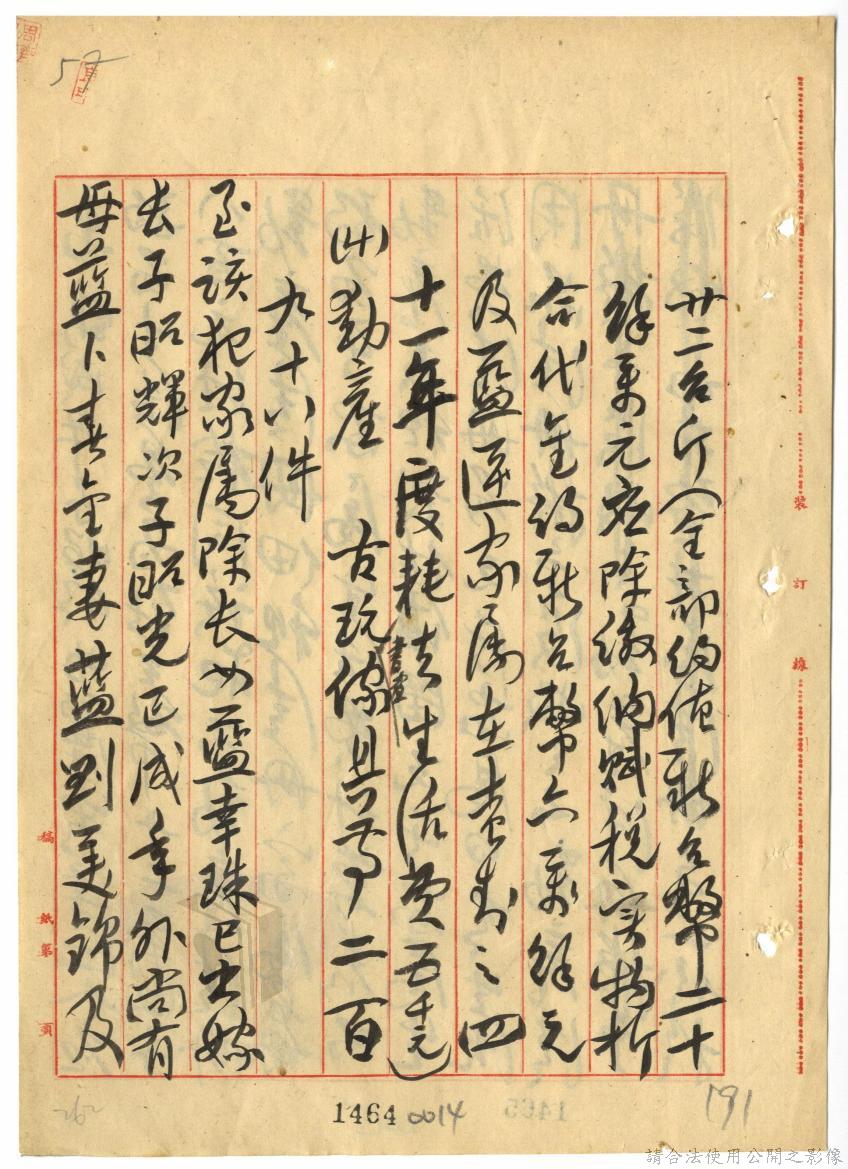 57
廿二台斤（全部約值新台幣二十
餘萬元應除繳納賦稅实物折
合代金約新台幣六萬餘元
及藍匪家屬在查封之四
十一年度耗去生活費五千元）
(四)動產　古玩書畫傢具等二百
九十八件
至該犯家屬除長女藍幸珠已出嫁
長子昭輝次子昭光已成年外尚有
母藍卜春金妻藍劉美錦及
裝
訂
線
稿
紙
第
頁
1464
0014
191
262
1465
請合法使用公開之影像